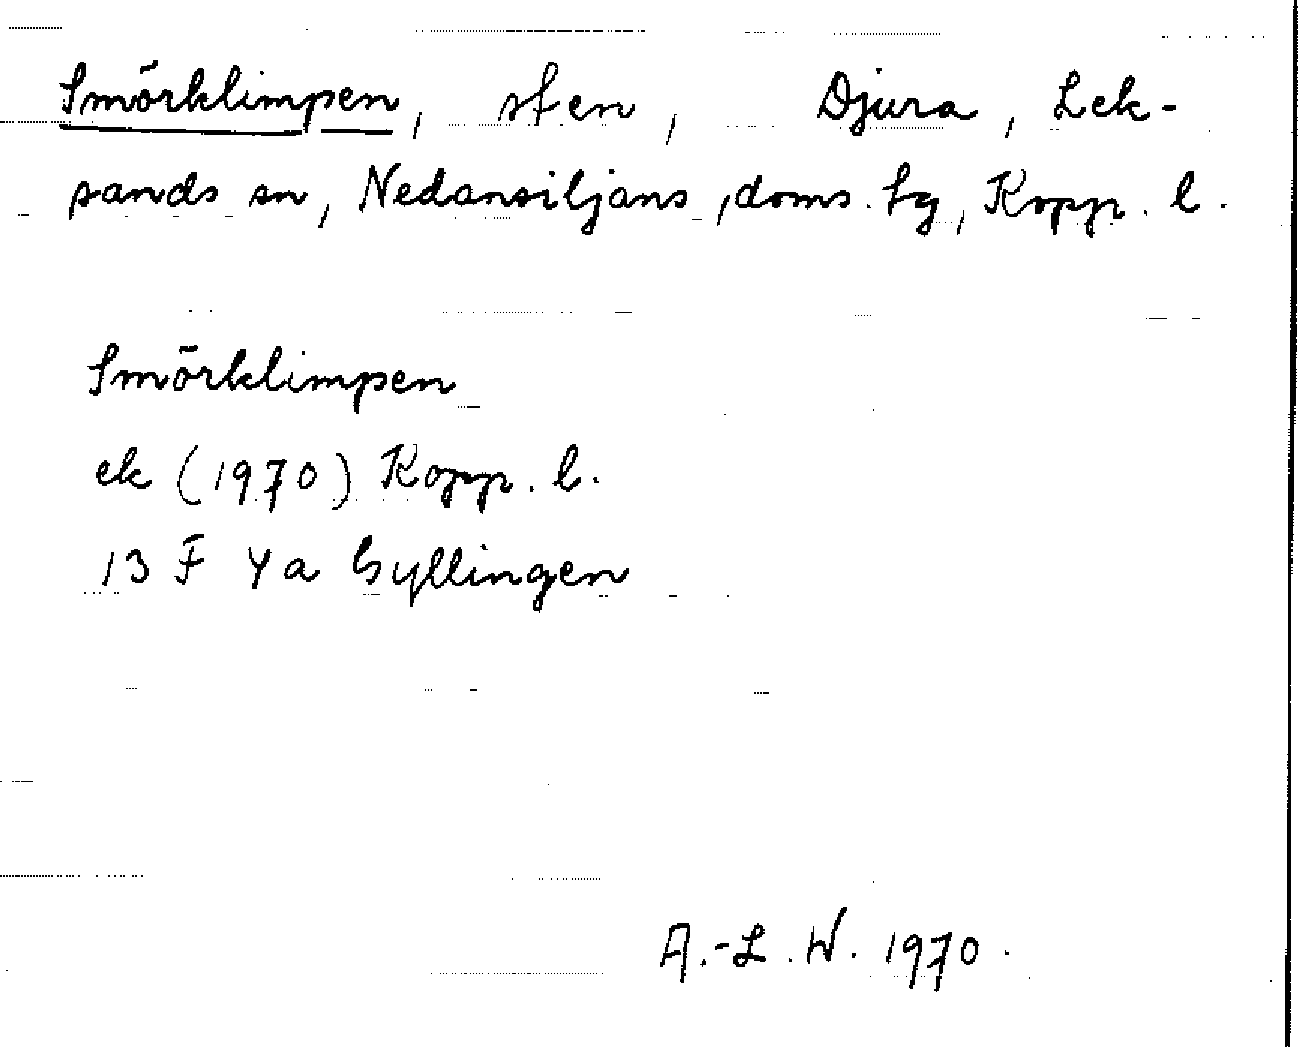 Smörklimpen, sten, Djura, Lek-
sands sn, Nedansiljans, doms. tg, Kopp. l.
Smörklimpen
ek (1970) Kopp. l.
13 F 4a Gyllingen
A.-L. W. 1970.